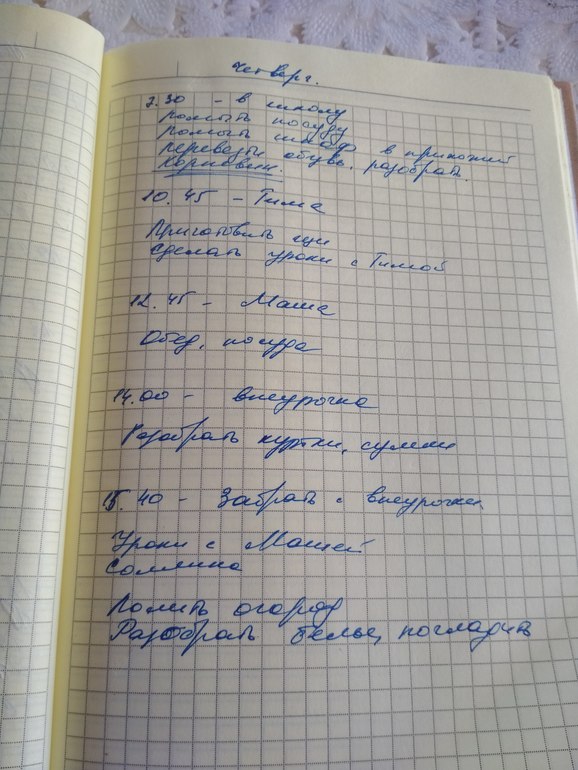 Четверг.
7.30 - в школу
Помыть посуду
Помыть шкаф в прихожей
перевезти обувь, разобрать
10.45 - Тима
Приготовить щи
Сделать уроки с Тимой
12.45 - Маша
Обед, посуда
14.00 - внеурочка
Разобрать куртки, сумки
15.40 - Забрать с внеурочки
Уроки с Машей
Полить огород
Разобрать белье, погладить